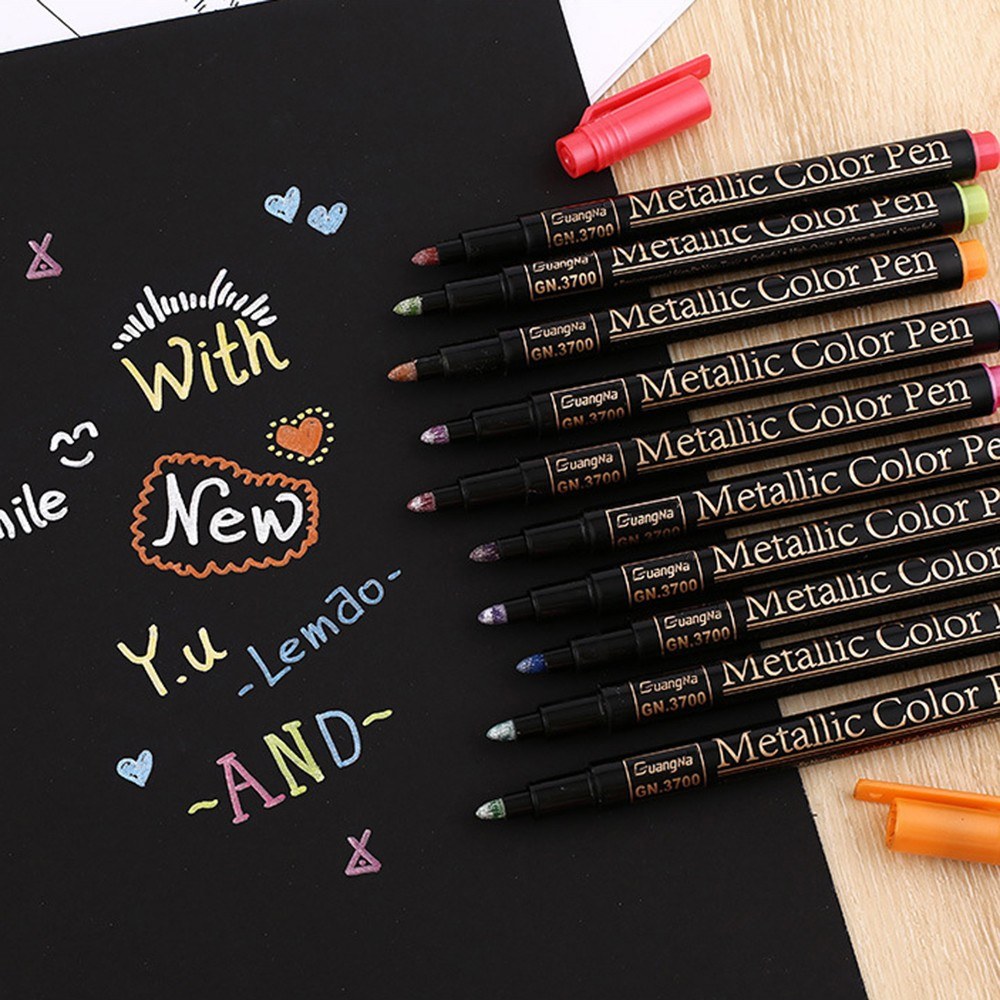 With
New
mile
Y.u
-Lemdo-
~AND~
GuangNa
GN.3700
Metallic Color Pen
GuangNa
GN.3700
Metallic Color Pen
GuangNa
GN.3700
Metallic Color Pen
GuangNa
GN.3700
Metallic Color Pen
GuangNa
GN.3700
Metallic Color Pen
GuangNa
GN.3700
Metallic Color Pe
GuangNa
GN.3700
Metallic Color P
GuangNa
GN.3700
Metallic Color
GuangNa
GN.3700
Metallic Color
GuangNa
GN.3700
Metallic Color P